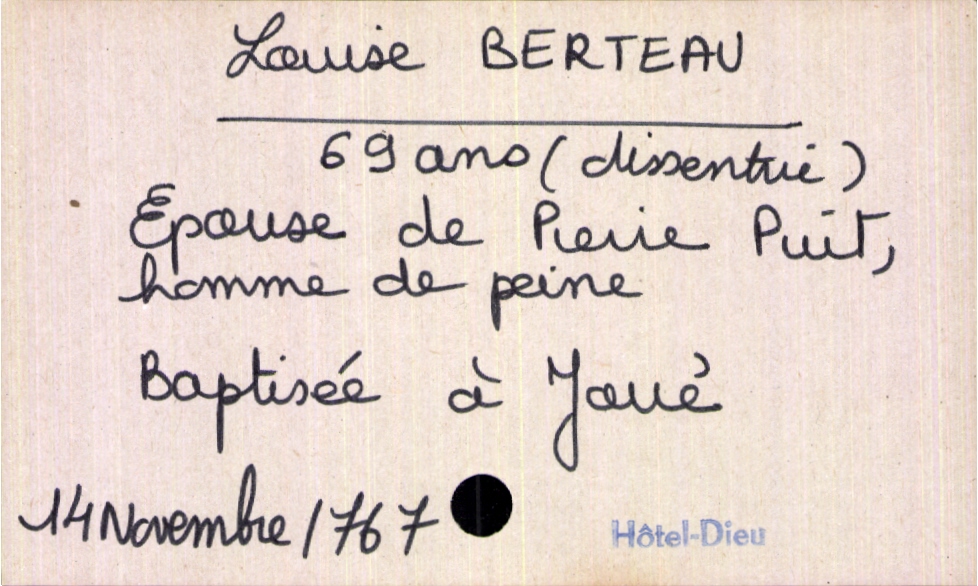 Louise BERTEAU
69 ans (dissentrie)
Epouse de Pierre Puit,
homme de peine
Baptisée à Joué
14 Novembre 1767
Hôtel-Dieu